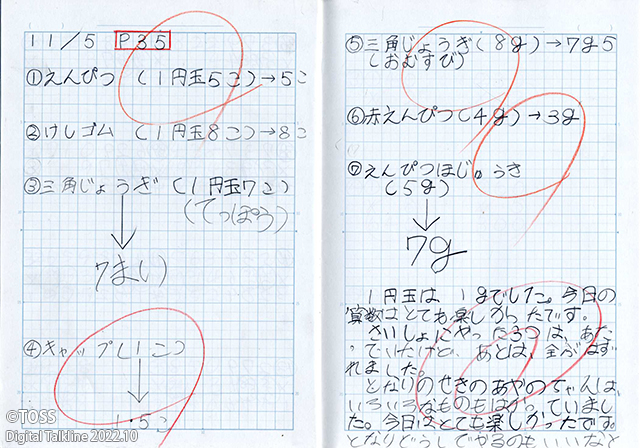 11/5 P35
①えんぴつ (1円玉5こ)→5こ
②けしゴム (1円玉8こ)→8こ
③三角じょうぎ(1円玉7こ)
(てっぽう)
7まい
④キャップ(1こ)
1.5こ
©TOSS
Digital Talkline 2022.10
⑤三角じょうぎ(8g)→7g5
(おむすび)
⑥赤えんぴつ(4g)→3g
⑦えんぴつほじょうき
(5g)
7g
1円玉は 1gでした。今日の
算数はとても楽しかったです。
さいしょにやった3つは、あた
っていたけど、あとは、全ぶはず
れました。
となりのせきのあやのちゃんは
いろいろなものもはかっていまし
た。今日はとても楽しかったです。
となりどうしでやるのもいいなと